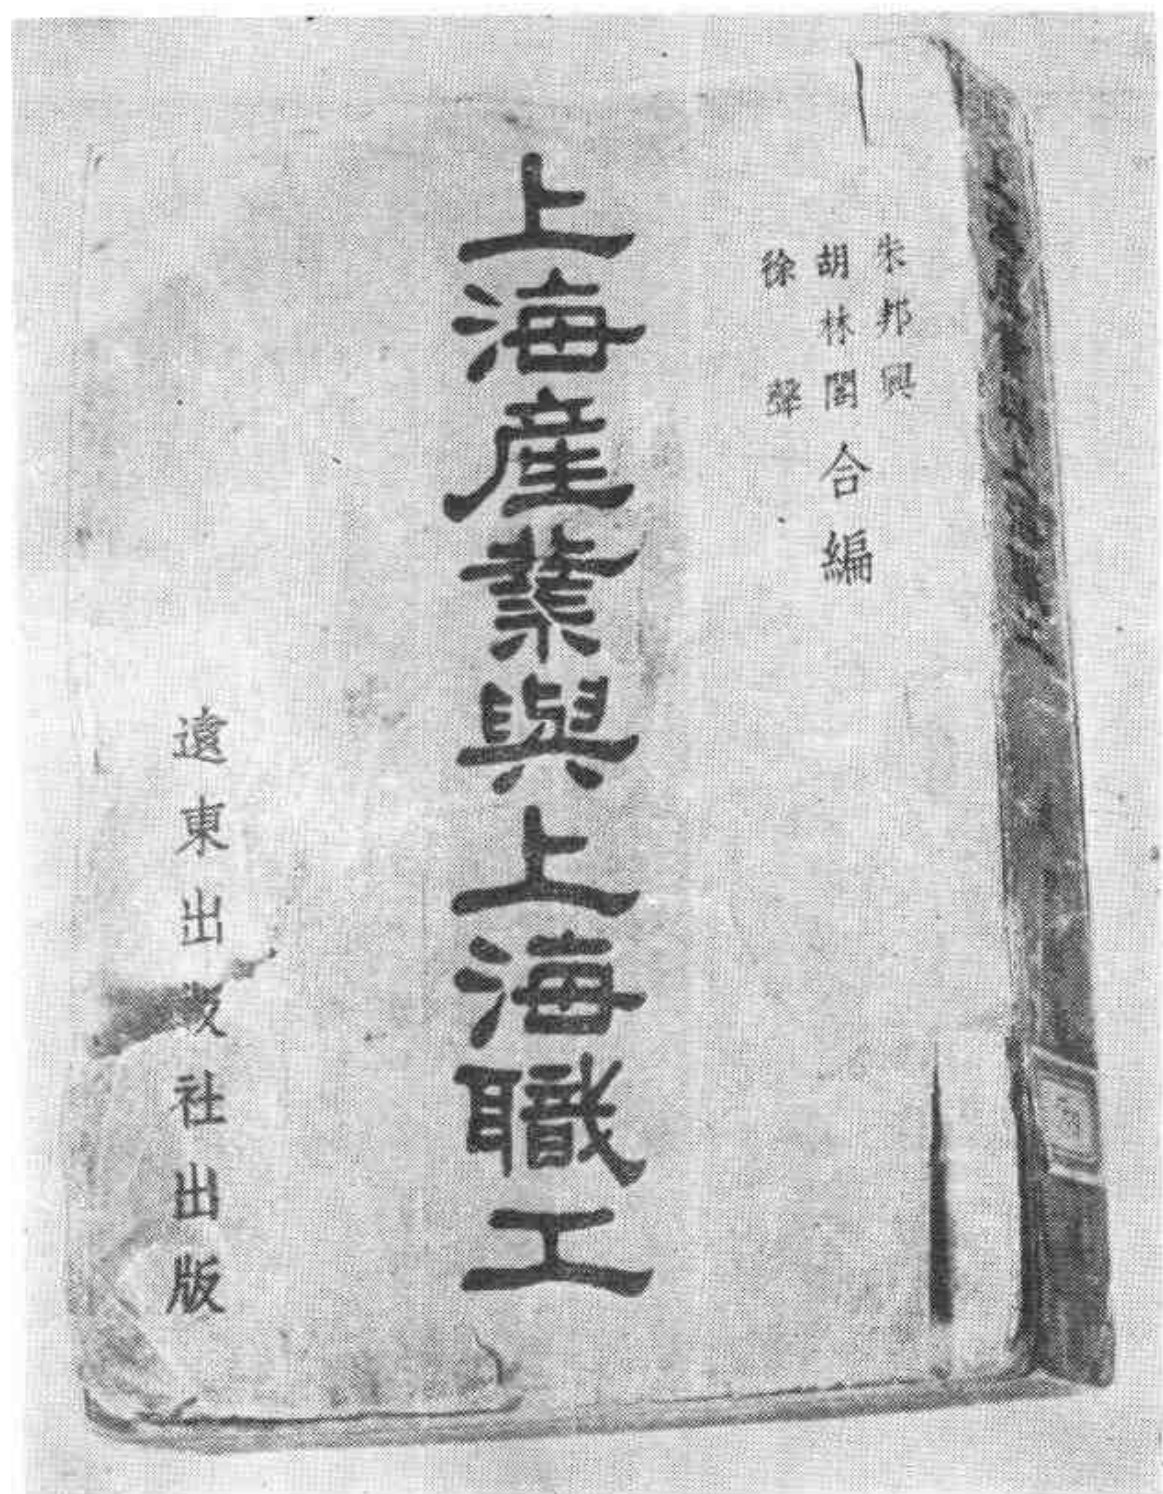 朱邦興
胡林閣合編
徐聲
上海產業與上海職工
遠東出版社出版